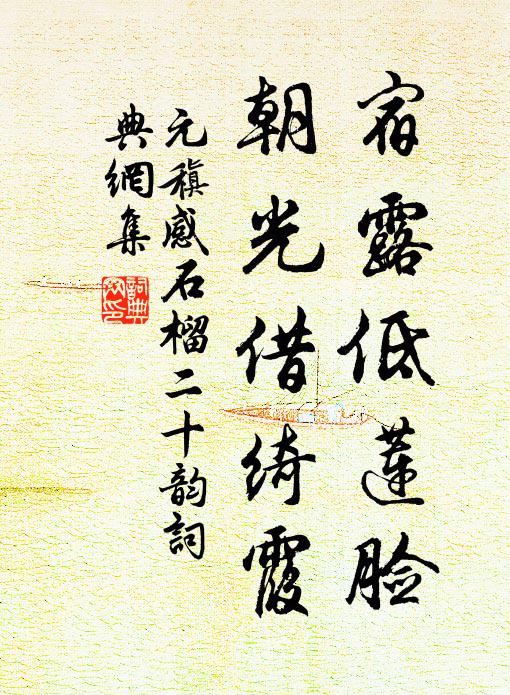 宿露低莲脸
朝光借绮霞
元稹感石榴二十韵詞
典網集
詞典